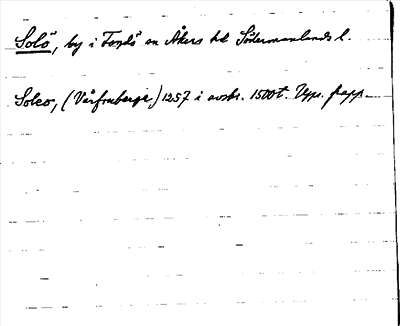 Solö, by i Fogdö sn Åkers hd Södermanlands l.
Soleo, (Vårfruberga) 1257 i avskr. 1500 t. Upps. frapp.